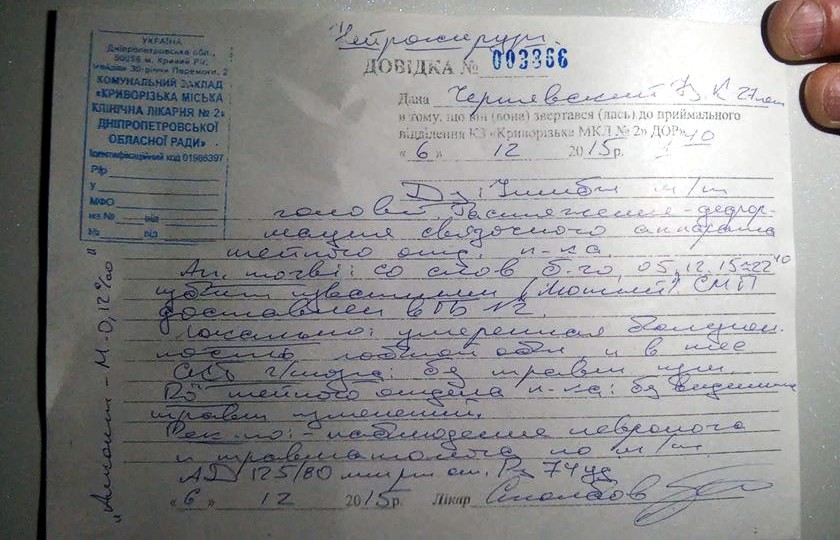 УКРАЇНА
Дніпропетровська обл.,
50056 м. Кривий Ріг,
майдан 30-річчя Перемоги, 2
КОМУНАЛЬНИЙ ЗАКЛАД
«КРИВОРІЗЬКА МІСЬКА
КЛІНІЧНА ЛІКАРНЯ № 2»
ДНІПРОПЕТРОВСЬКОЇ
ОБЛАСНОЇ РАДИ»
Ідентифікаційний код 01986397
Р/р
у
МФО
на № від
№ від
Нейрохирург
ДОВІДКА № 003366
Дана Чернявский 27 лет
в тому, що він (вона) звертався (лась) до приймального
відділення КЗ «Криворізька МКЛ № 2» ДОР»
« 6 » 12 2015р.
Dз: Ушибы м/т
головы Растяжение - дефор-
мация связочного аппарата
шейного отд. п-ка.
Ан. morbi: со слов б-го, 05.12.15 ≈ 22 40
избит известными СМП
доставлен в ГБ №2.
Локально: умеренная болезнен-
ность лобной обл и в шее
г/мозга: без травм изм.
Ro шейного отдела п-ка: без видимых
травм изменений.
Рек-но: - наблюдение невролога
и травматолога по м/ж
АД 125/80 мм рт ст. Ps 74 уд
« 6 » 12 2015р. Лікар
"Алкотест - М - 0,12 %о"